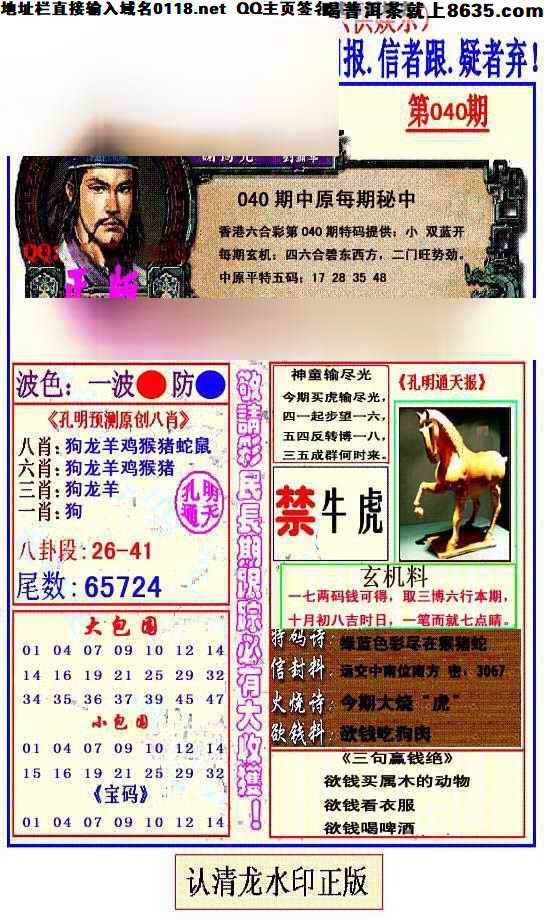 地址栏直接输入域名0118.net QQ主页签名
喝普洱茶就上8635.com
报.信者跟.疑者弃!
第040期
040 期中原每期秘中
香港六合彩第 040 期特码提供：小 双蓝开
每期玄机：四六合碧东西方，二门旺势劲。
中原平特五码：17 28 35 48
QQ:
正版
波色：一波 防
《孔明预测原创八肖》
八肖:狗龙羊鸡猴猪蛇鼠
六肖:狗龙羊鸡猴猪
三肖:狗龙羊
一肖:狗
孔明通天
八卦段:26-41
尾数:65724
大包围
01 04 07 09 10 12 14
14 16 19 21 25 29 32
34 35 36 37 39 45 47
小包围
01 04 07 09 10 12 14
15 16 19 21 25 29 32
《宝码》
01 04 07 09 10 12 14
敬請彩民長期跟踪必有大收獲！
神童输尽光
今期买虎输尽光，
四一起步望一六，
五四反转博一八，
三五成群何时来。
《孔明通天报》
禁 牛虎
玄机料
一七两码钱可得，取三博六行本期，
十月初八吉时日，一笔而就七点睛。
特码诗:绿蓝色彩尽在猴猪蛇
信封料:远交中南位南方 密：3067
火烧诗:今期大烧“虎”
欲钱料:欲钱吃狗肉
《三句赢钱绝》
欲钱买属木的动物
欲钱看衣服
欲钱喝啤酒
认清龙水印正版